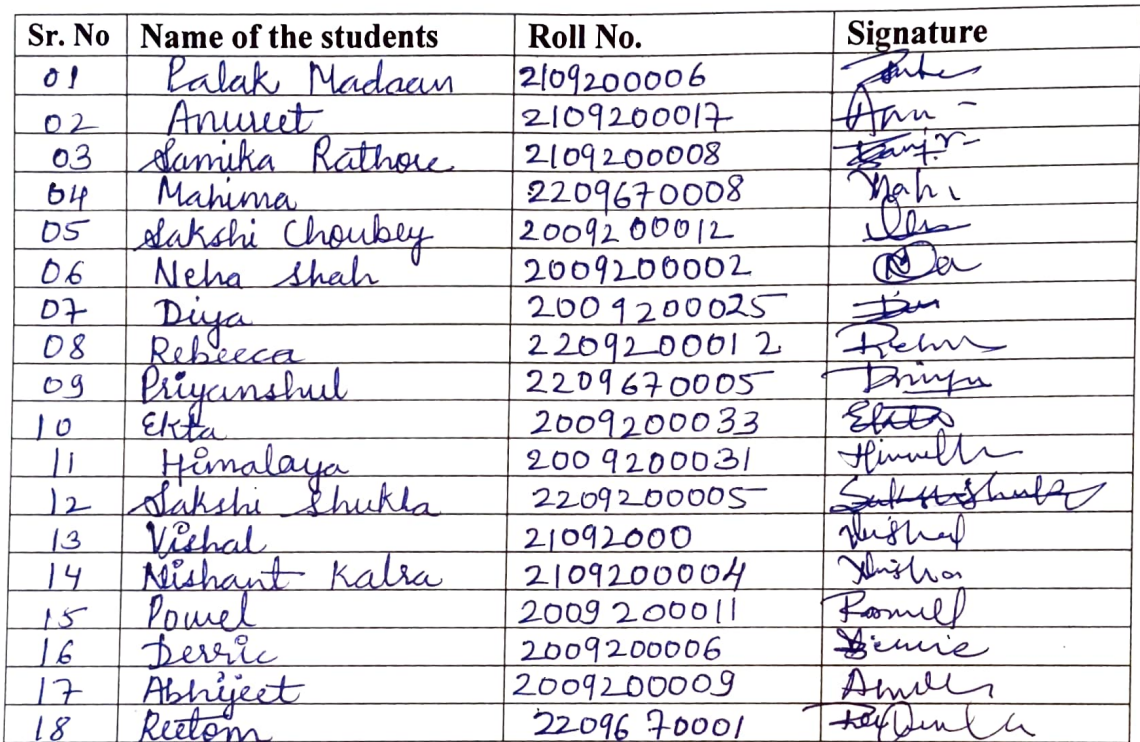 Sr. No Name of the students Roll No. Signature
01 Palak Madaan 2109200006
02 Anureet 2109200017
03 Samika Rathore 2109200008
04 Mahima 2209670008 Mahi
05 Sakshi Choubey 2009200012
06 Neha Shah 2009200002
07 Diya 2009200025
08 Rebeeca 2209200012
09 Priyanshul 2209670005
10 Ekta 2009200033 Ekta
11 Himalaya 2009200031
12 Sakshi Shukla 2209200005
13 Vishal 21092000 Vishal
14 Nishant Kalra 2109200004
15 Powel 2009200011
16 Derric 2009200006
17 Abhijeet 2009200009
18 Reetom 2209670001